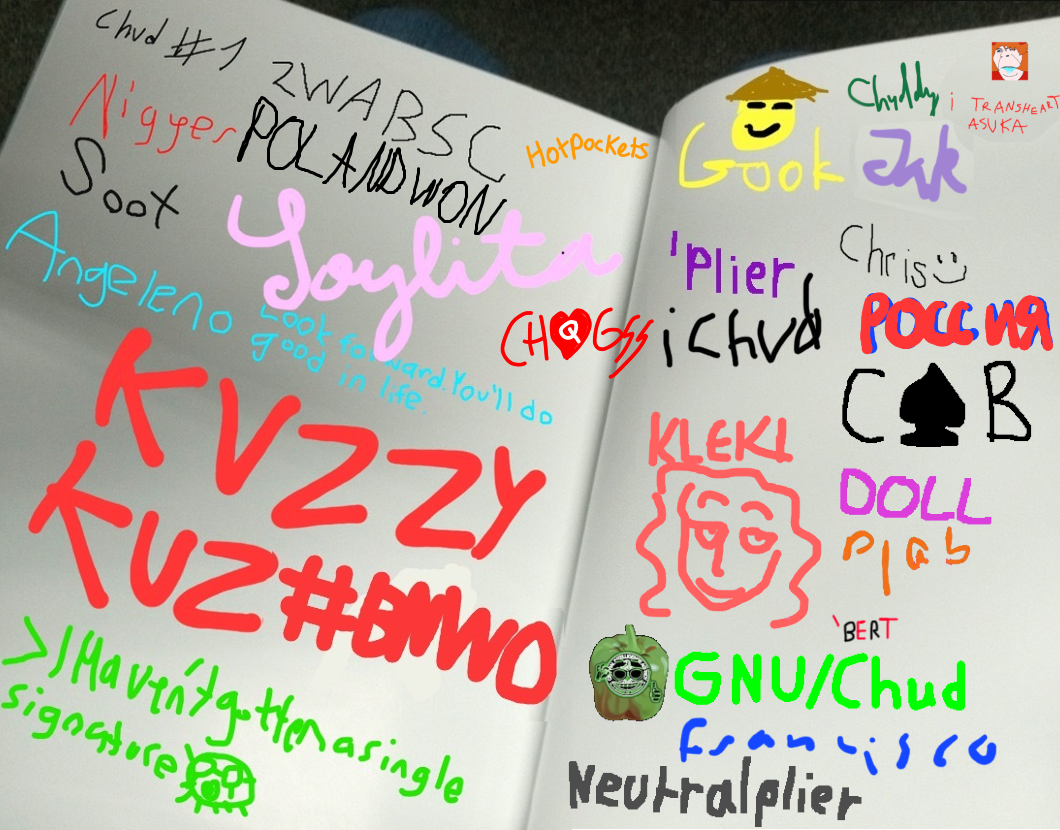 chud #1
ZWABSC
Nigger
POLANDWON
Soot
Hotpockets
Soylita
Angeleno
Look forward. You'll do
good in life.
CHQGSS
KVZZY
KUZ#BMWO
>I Haven't gotten a single
signature
Gook
Chuddy
i TRANSHEART
ASUKA
Jak
'Plier
Chris
iChud
РОССИЯ
C♠B
KLEKI
DOLL
njab
'BERT
GNU/Chud
Francisco
Neutralplier